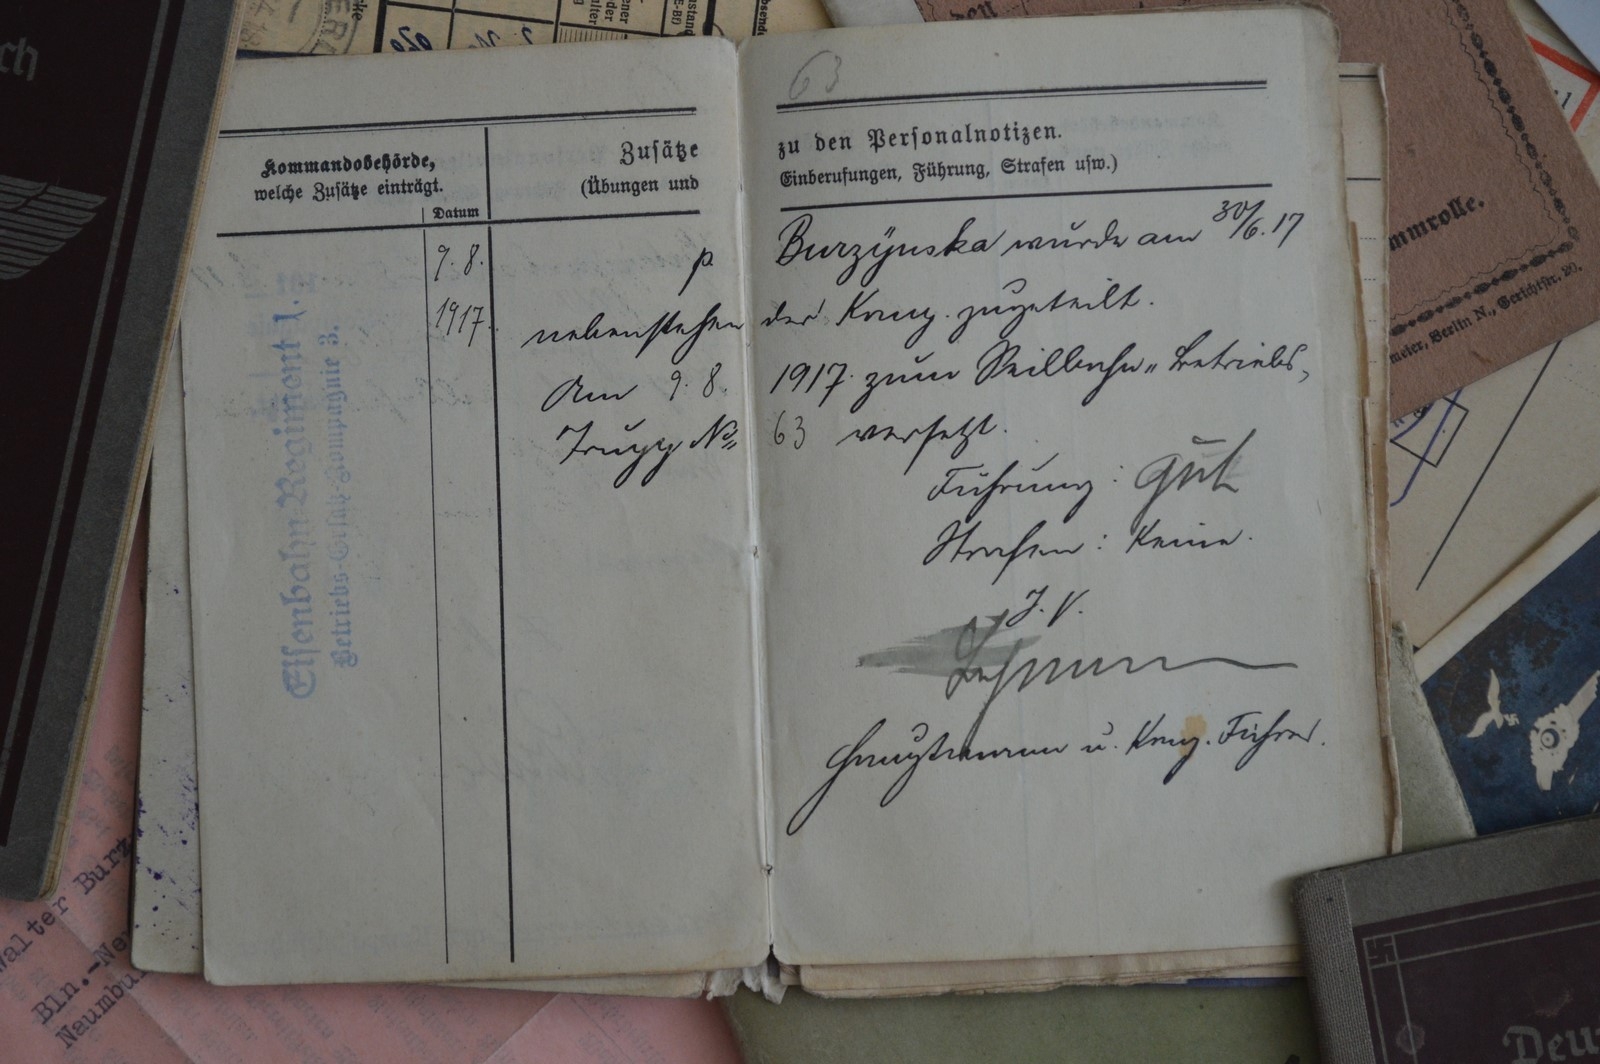 ch
63
Kommandobehörde,
welche Zusätze einträgt.
Datum
Zusätze zu den Personalnotizen.
(Übungen und Einberufungen, Führung, Strafen usw.)
9. 8. p Burzÿnska wurde am 30/6. 17
1917. nebenstehender Komp. zugeteilt.
Am 9. 8. 1917. zum Seilbahn-Betriebs-
Trupp No 63 versetzt.
Führung: gut
Strafen: Keine.
J. V.
Hauptmann u. Komp. Führer.
Eisenbahn-Regiment 1.
Betriebs-Ersatz-Kompagnie 3.
mmrolle.
meier, Berlin N., Gerichtstr. 20.
Walter Burz
Bln.-Neu
Naumbu
Deu